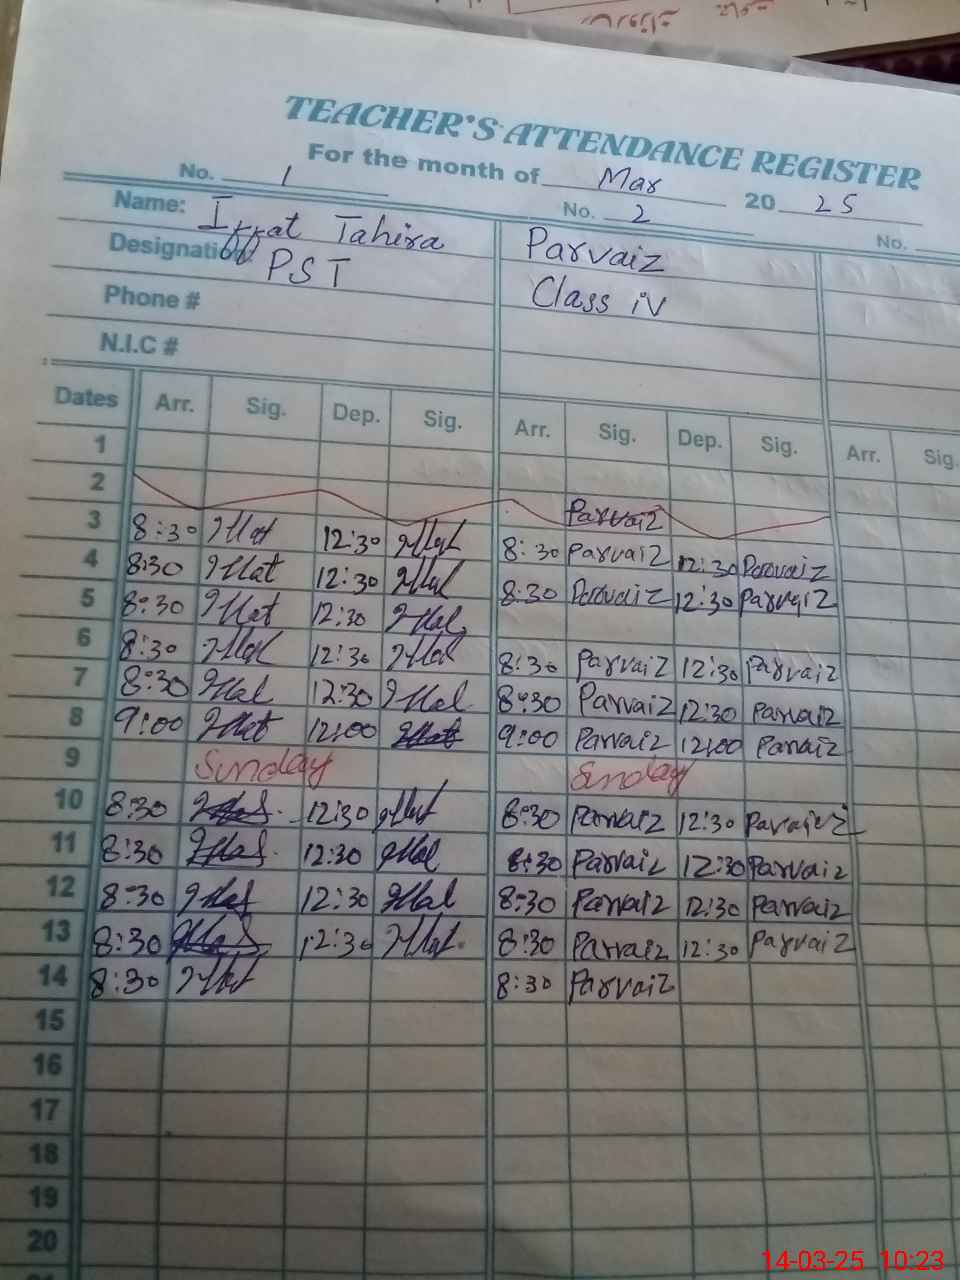 TEACHER'S ATTENDANCE REGISTER
For the month of Mar 20 25
No. 1 No. 2 No.
Name: Iffat Tahira Parvaiz
Designation PST Class iv
Phone #
N.I.C #
Dates Arr. Sig. Dep. Sig. Arr. Sig. Dep. Sig. Arr. Sig.
1
2
Parvaiz
3 8:30 12:30 8:30 Parvaiz 12:30 Parvaiz
4 8:30 12:30 8:30 Parvaiz 12:30 Parvaiz
5 8:30 12:30
6 8:30 12:30 8:30 Parvaiz 12:30 Parvaiz
7 8:30 12:30 8:30 Parvaiz 12:30 Parvaiz
8 9:00 12:00 9:00 Parvaiz 12:00 Parvaiz
9 Sunday Sunday
10 8:30 12:30 8:30 Parvaiz 12:30 Parvaiz
11 8:30 12:30 8:30 Parvaiz 12:30 Parvaiz
12 8:30 12:30 8:30 Parvaiz 12:30 Parvaiz
13 8:30 12:30 8:30 Parvaiz 12:30 Parvaiz
14 8:30 8:30 Parvaiz
15
16
17
18
19
20
14-03-25 10:23